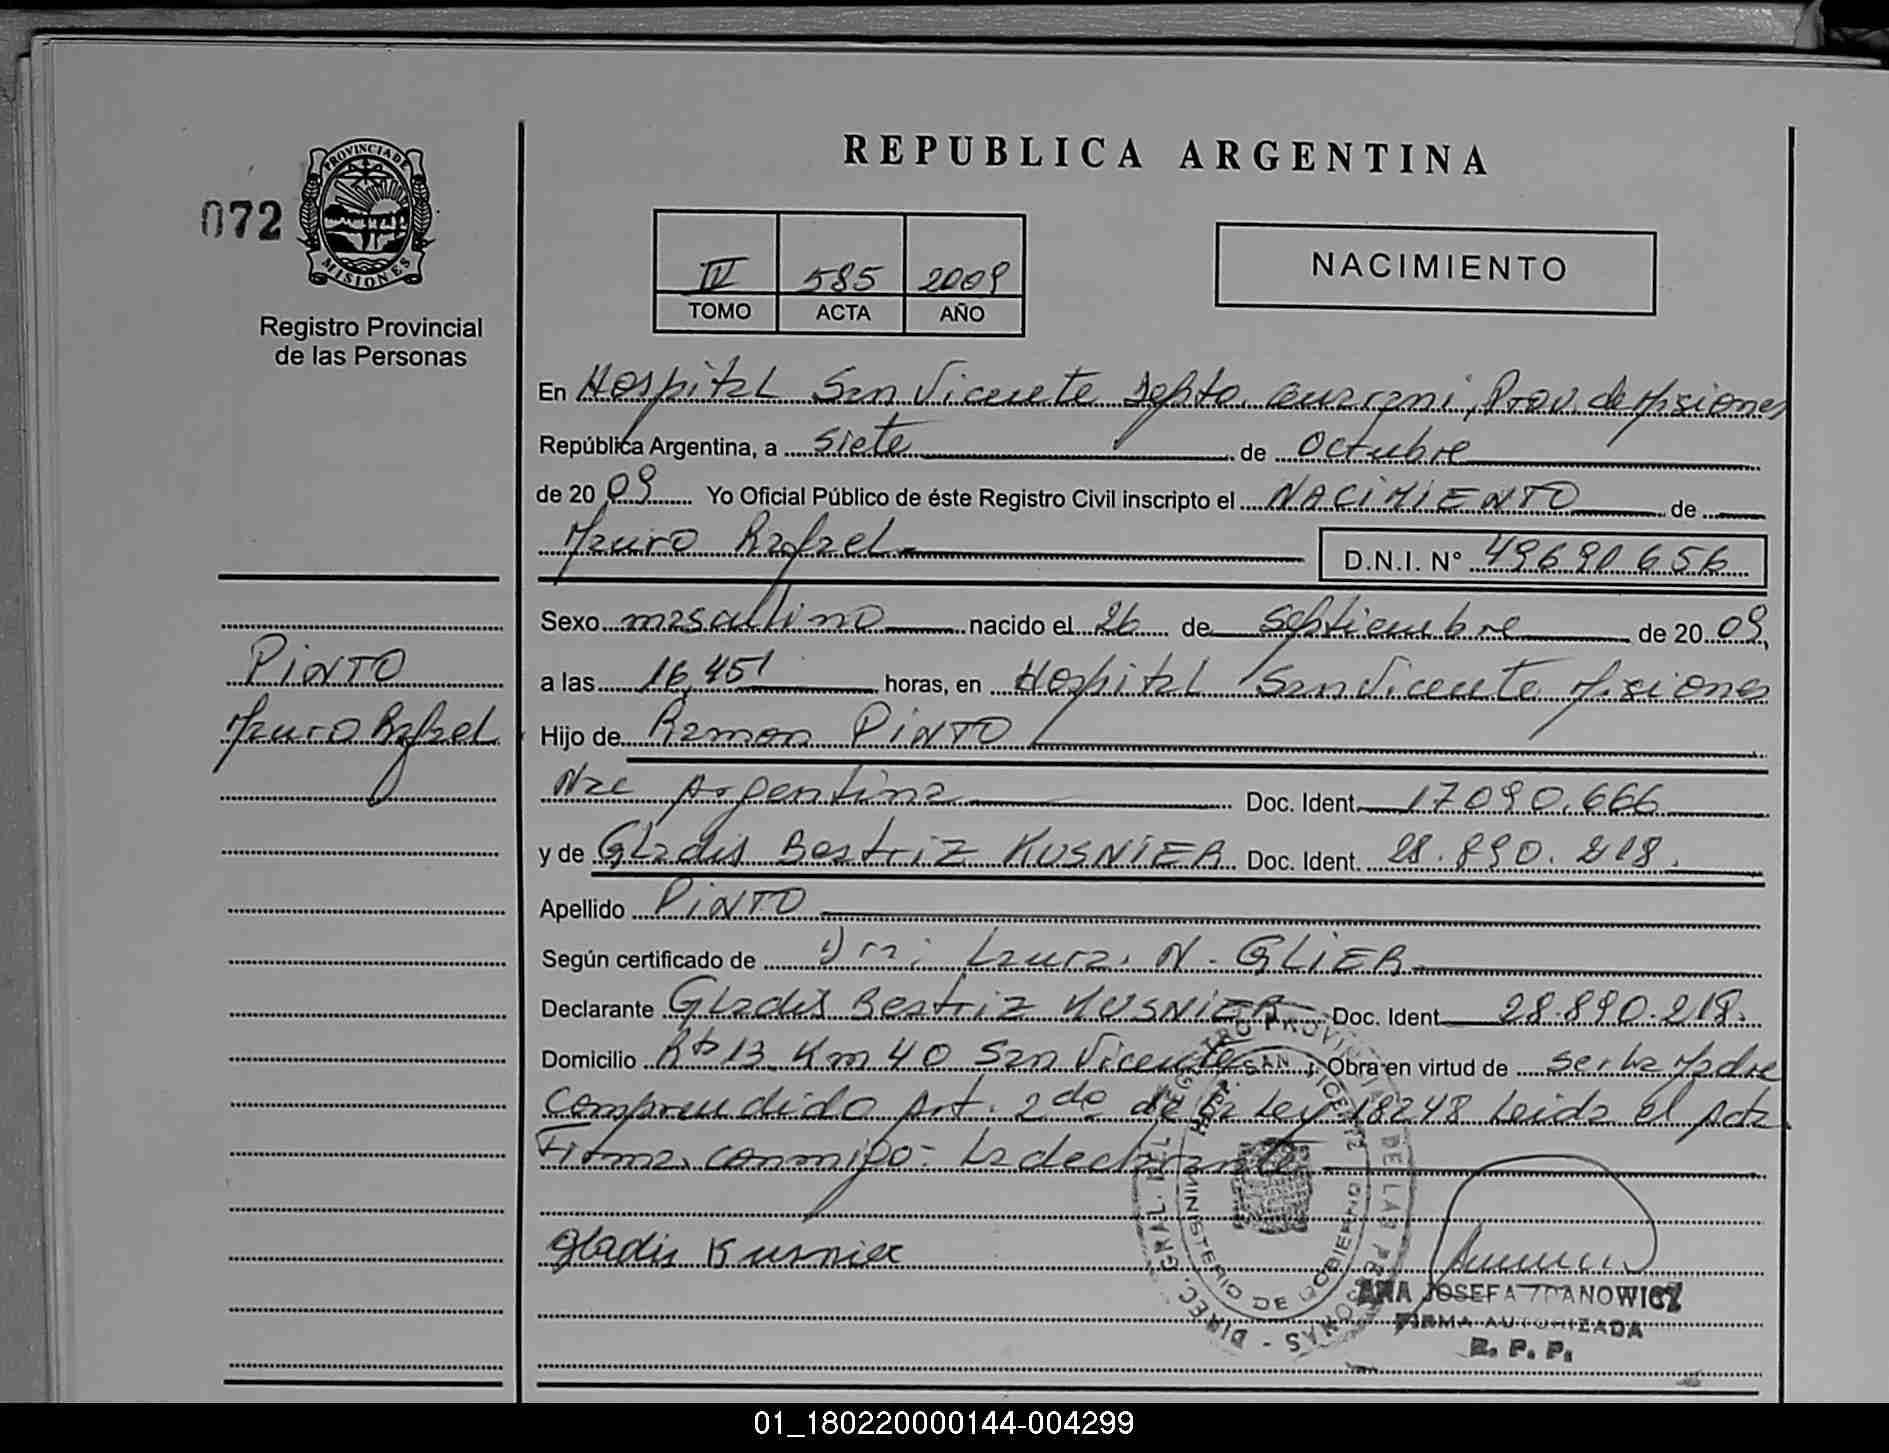 REPUBLICA ARGENTINA
072
PROVINCIA DE MISIONES
Registro Provincial
de las Personas
IV 585 2009
TOMO ACTA AÑO
NACIMIENTO
En Hospital San Vicente Depto. Guarani, Prov. de Misiones
República Argentina, a siete de Octubre
de 2009 Yo Oficial Público de éste Registro Civil inscripto el NACIMIENTO de
Mauro Rafael D.N.I. N° 49690656
Sexo masculino nacido el 26 de Septiembre de 2009,
a las 16,45' horas, en Hospital San Vicente Misiones
PINTO
Mauro Rafael
Hijo de Ramon PINTO
Nac Argentina Doc. Ident. 17090.666
y de Gladis Beatriz KUSNIER Doc. Ident. 28.890.218.
Apellido PINTO
Según certificado de Dra; Laura. N. GLIER
Declarante Gladis Beatriz KUSNIER Doc. Ident 28.890.218.
Domicilio Rta 13 Km 40 San Vicente. Obra en virtud de ser la Madre
Comprendido Art. 2do de la Ley 18248 Leida el Acta
Firma conmigo: La declarante
Gladis Kusnier
DIREC. GRAL. REGISTRO PROVINCIAL DE LAS PERSONAS
SAN VICENTE
MINISTERIO DE GOBIERNO
ANA JOSEFA ZDANOWICZ
FIRMA AUTORIZADA
R. P. P.
01_180220000144-004299